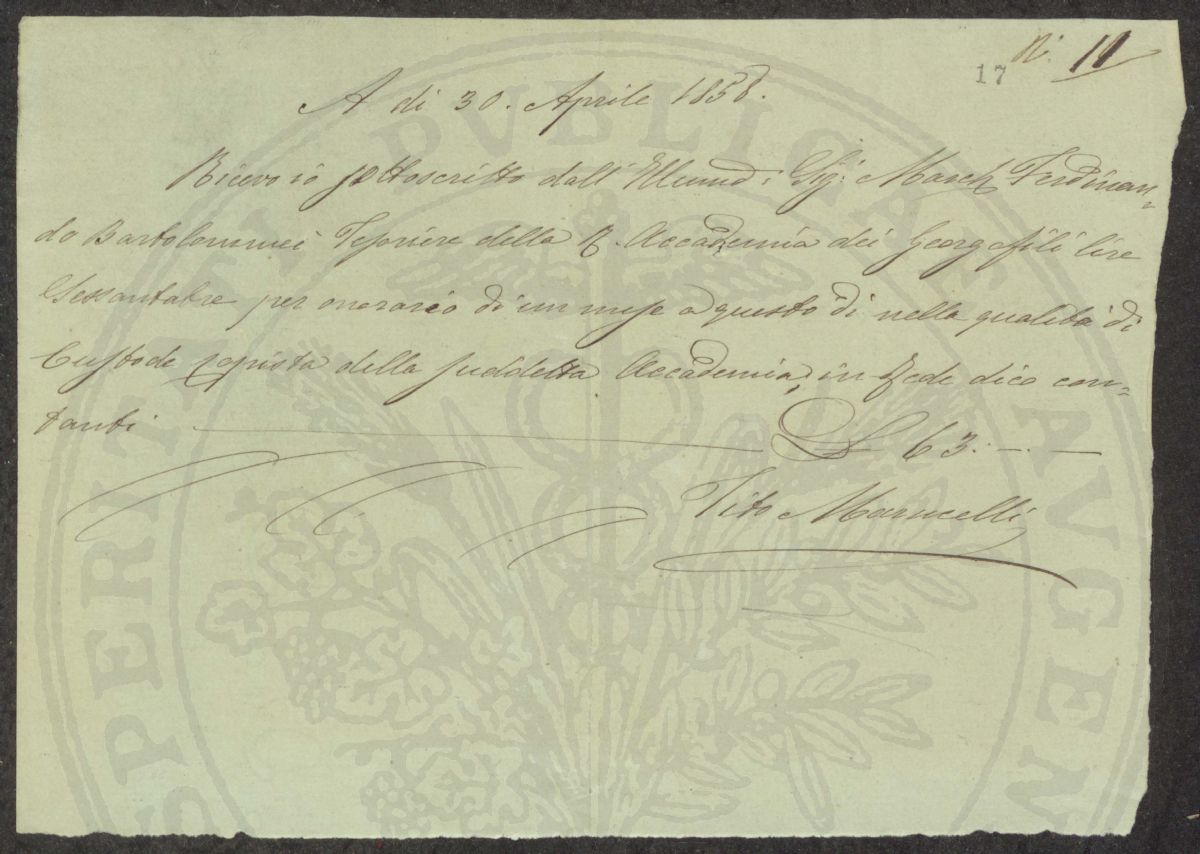 N: 11
17
A di 30. Aprile 1858.
Ricevo io sottoscritto dall' Illumd: Sig: March Ferdinan-
do Bartolommei Tesoriere della R. Accademia dei Georgofili lire
Sessantatre per onorario di un mese a questo dì nella qualità di
Custode copista della suddetta Accademia, in fede dico con-
tanti £ 63. -.-
Tito Marucelli
PROSPERITATI PUBLICAE AUGEN